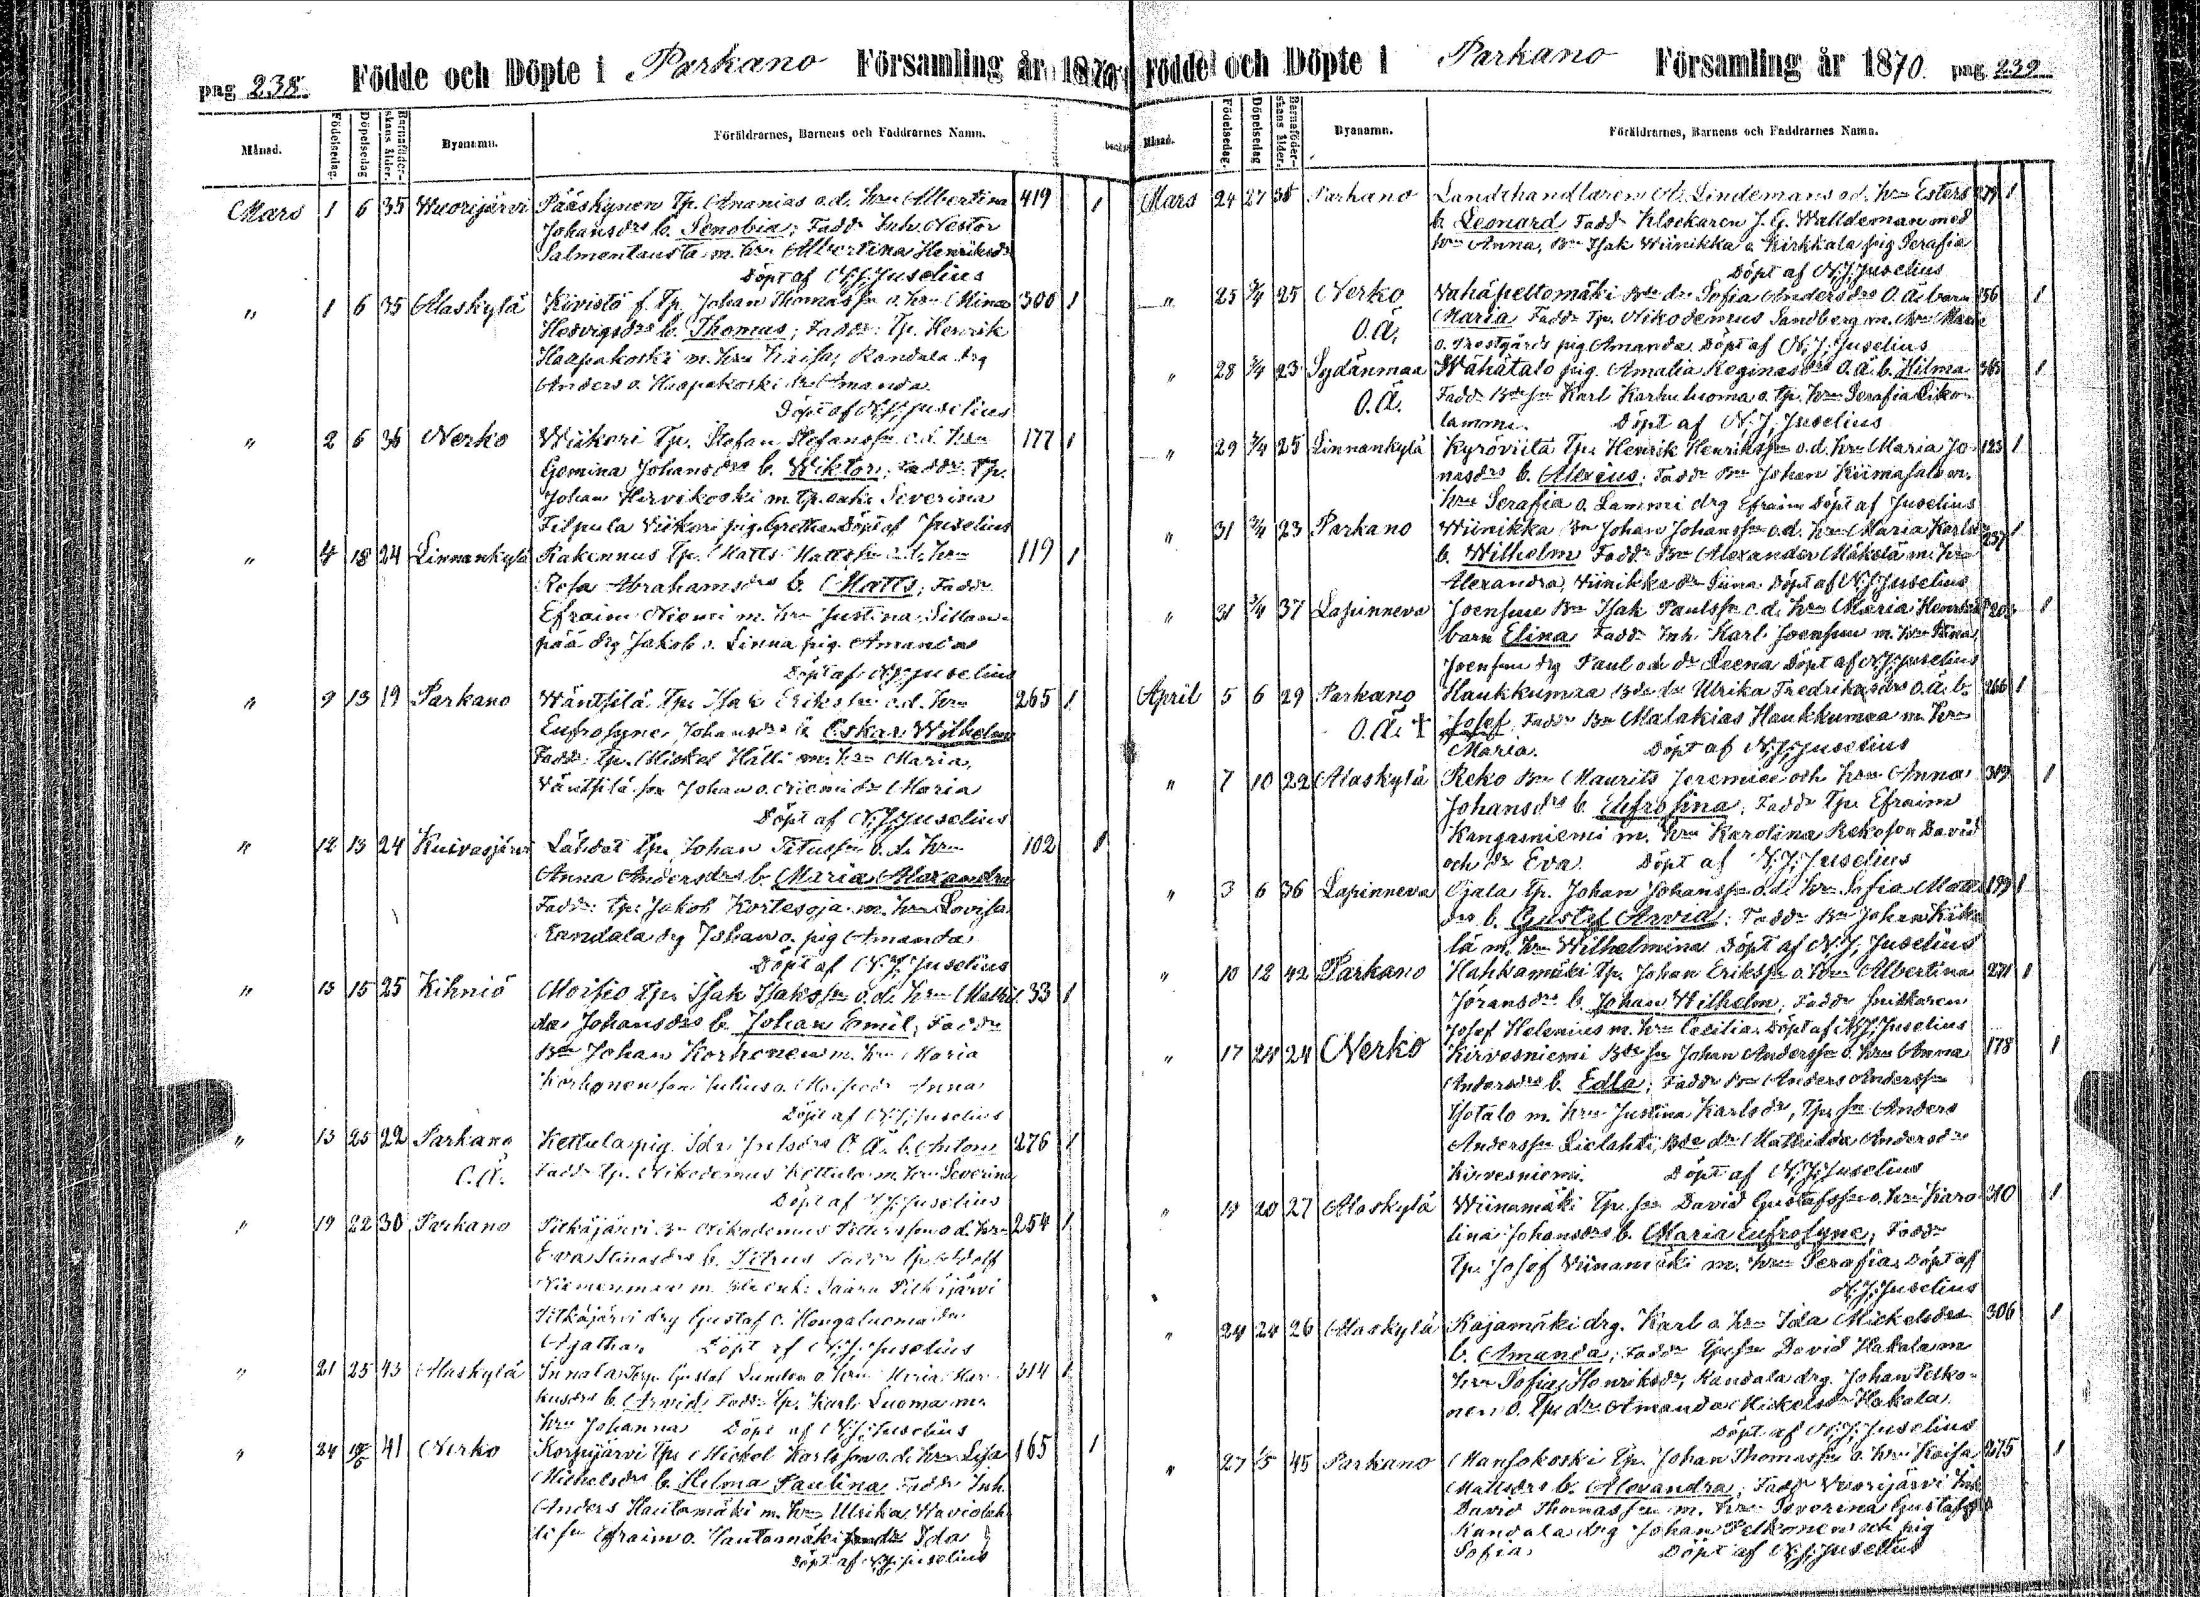 pag 238. Födde och Döpte i Parkano Församling år 1870
Månad. Födelsedag. Döpelsedag Barnaföderskans ålder. Byanamn. Föräldrarnes, Barnens och Faddrarnes Namn.
Mars 1 6 35 Wuorijärvi Pääskynen Tp. Ananias o.d. hru Albertina 419 1
Johansdr b. Senobia; Fadd. Inh. Nestor
Salmentausta m. hru Albertina Henriksdr
Döpt af N.J. Juselius
" 1 6 35 Alaskylä Kivistö f. Tp. Johan Thomassn o. hru Mina 300 1
Hedvigsdr b. Thomas; Fadd: Tp. Henrik
Haapakoski m. hru Kaisa, Kandala drg
Anders o. Haapakoski dr Amanda
Döpt af N.J. Juselius
" 2 6 36 Nerko Wiikeri Tp. Stefan Stefanssn o.d. hru 177 1
Gemina Johansdr b. Wiktor; Fadd: Tp.
Johan Hirvikoski m. Tp. enk. Severina
Filpula Viikeri pig. Gretha Döpt af Juselius
" 4 18 24 Linnankylä Rakennus Tp. Matts Mattssn o.d. hru 119 1
Rosa Abrahamsdr b. Matts; Fadd
Efraim Niemi m. hru Justina Sillan-
pää drg Jakob o. Linna pig. Amanda
Döpt af N.J. Juselius
" 9 13 19 Parkano Wäntsilä Tp. Isak Erikssn o.d. hru 265 1
Eufrosyne Johansdr b. Oskar Wilhelm
Fadd: Tp. Mickel Hälli m. hru Maria,
Väntsilä sn Johan o. Niemi dr Maria
Döpt af N.J. Juselius
" 12 13 24 Kuivasjärvi Lähdet Tp. Johan Titussn o.d. hru 102 1
Anna Andersdr b. Maria Alexandra
Fadd: Tp. Jakob Kortesoja m. hru Lovisa
Kandala drg Johan o. pig Amanda
Döpt af N.J. Juselius
" 13 15 25 Kihniö Moisio Tp. Isak Isakssn o.d. hru Mathil- 33 1
da Johansdr b. Johan Emil; Fadd
Bn Johan Korhonen m. hru Maria
Korhonen son Julius o. Moisio dr Anna
Döpt af N.J. Juselius
" 13 25 22 Parkano Kettula pig. Ida O.Ä. b. Anton 276 1
O.Ä. Fadd Tp. Nikodemus Kettula m. hru Severina
Döpt af N.J. Juselius
" 19 22 30 Parkano Pitkäjärvi Bn Nikodemus Peterssn o.d. hru 254 1
Eva Stinasdr b. Petrus Fadd Tp. Adolf
Nieminen m. Bde enk: Saara Pitkäjärvi
Pitkäjärvi drg Gustaf o. Hongaluoma dr
Agatha Döpt af N.J. Juselius
" 21 25 43 Alaskylä Innala Torp. Gustaf Lunden o. hru Maria Mar- 314 1
kusdr b. Arvid; Fadd Tp. Karl Luoma m.
hru Johanna Döpt af N.J. Juselius
" 24 41 Nerko Korpijärvi Tp. Mickel Karlsson o.d. hru Lisa 165 1
Michelsdr b. Hilma Paulina Fadd: Inh.
Anders Hautamäki m. hru Ulrika Haviolah-
ti sn Efraim o. Hautamäki dr Ida
Döpt af N.J. Juselius
Födde och Döpte i Parkano Församling år 1870. pag 239
Månad. Födelsedag. Döpelsedag Barnaföderskans ålder. Byanamn. Föräldrarnes, Barnens och Faddrarnes Namn.
Mars 24 27 38 Parkano Landthandlaren A. Lindemans o.d. hru Esters 279 1
b. Leonard Fadd Klockaren J.G. Walldeman med
hru Anna, Bn Isak Wiinikka o. Kirkkala pig Serafia
Döpt af N.J. Juselius
" 25 3/4 25 Nerko Vahäpeltomäki Bde dr Sofia Andersdr O.Ä. barn 156 1
O.Ä. Maria Fadd Tp. Nikodemus Sandberg m. hru Maria
o. Prestgårds pig Amanda Döpt af N.J. Juselius
" 28 3/4 23 Sydänmaa Wähätalo pig. Amalia Reginasdr O.Ä. b. Hilma 365 1
O.Ä. Fadd Bde sn Karl Karhuluoma o. Tp. hru Serafia Liko-
lammi. Döpt af N.J. Juselius
" 29 3/4 25 Linnankylä Kyröviita Tp. Henrik Henrikssn o.d. hru Maria Jo- 123 1
nasdr b. Alexius; Fadd Bn Johan Kiimasalo m.
hru Serafia o. Lammi drg Efraim Döpt af Juselius
" 31 3/4 23 Parkano Wiinikka Bn Johan Johanssn o.d. hru Maria Karlsdr 237 1
b. Wilhelm Fadd Bn Alexander Mäkelä m. hru
Alexandra, Viinikka dr Stina Döpt af N.J. Juselius
" 31 3/4 37 Lapinneva Joensuu Bn Isak Paulssn o.d. hru Maria Henriksdr 202 1
barn Elina Fadd Inh. Karl Joensuu m. hru Stina
Joensuu drg Paul och dr Leena Döpt af N.J. Juselius
April 5 6 29 Parkano Haukkumaa Bde dr Ulrika Fredrikasdr O.Ä. b. 266 1
O.Ä. † Josef Fadd Bn Malakias Haukkumaa m. hru
Maria. Döpt af N.J. Juselius
" 7 10 22 Alaskylä Reko Bn Maurits Jeremiae och hru Anna 319 1
Johansdr b. Eufrosina; Fadd Tp. Efraim
Kangasniemi m. hru Karolina Reko son David
och dr Eva. Döpt af N.J. Juselius
" 3 6 36 Lapinneva Ojala Tp. Johan Johanssn o.d. hru Sofia Matts- 199 1
dr b. Gustaf Arvid; Fadd Bn Johan Kiike-
lä m. hru Wilhelmina Döpt af N.J. Juselius
" 10 12 42 Parkano Hahkamäki Tp. Johan Erikssn o. hru Albertina 271 1
Joransdr b. Johan Wilhelm; Fadd Snickaren
Josef Helenius m. hru Cecilia Döpt af N.J. Juselius
" 17 24 24 Nerko Kirvesniemi Bde sn Johan Anderssn o. hru Anna 178 1
Andersdr b. Edla; Fadd Bn Anders Anderssn
Isotalo m. hru Justina Karlsdr, Tp. sn Anders
Anderssn Lielahti, Bde dr Mathilda Andersdr
Kirvesniemi. Döpt af N.J. Juselius
" 20 27 Alaskylä Wiinamäki Tp. sn David Gustafssn o. hru Karo- 310 1
lina Johansdr b. Maria Eufrosyne; Fadd
Tp. Josef Viinamäki m. hru Serafia Döpt af
N.J. Juselius
" 24 24 26 Alaskylä Rajamäki drg. Karl o. hru Ida Mickelsdr 306 1
b. Amanda; Fadd Tp. sn David Hakala m
hru Sofia Henriksdr, Kandala drg. Johan Pelko-
nen o. Tp. dr Amanda Mickelsdr Hakala.
Döpt af N.J. Juselius
" 27 1/5 45 Parkano Mansokoski Tp. Johan Thomassn o. hru Kaisa 275 1
Mattsdr b. Alexandra; Fadd Vuorijärvi Inh
David Thomassn m. hru Severina Gustafsdr
Kandala drg Johan Pelkonen och pig
Sofia. Döpt af N.J. Juselius